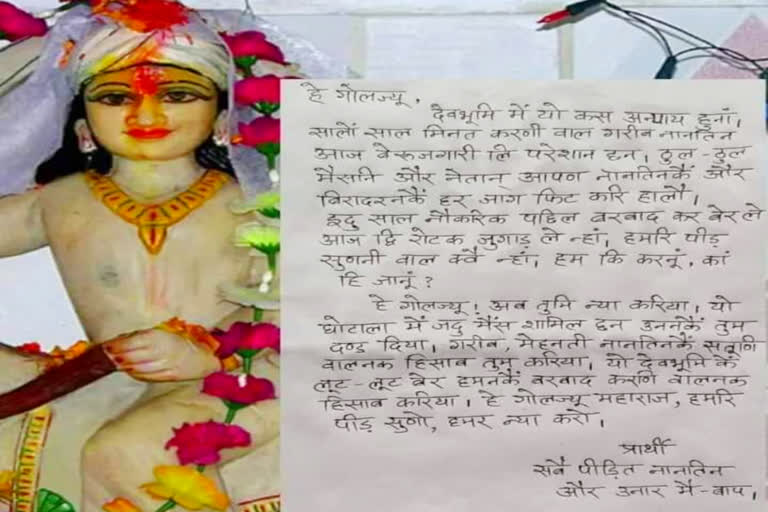 हे गोलज्यू,
देवभूमि में यो कस अन्याय हुनां,
सालों साल मिनत करणी वाल गरीब नानतिन
आज बेरुजगारी लि परेशान हन। ठुल-ठुल
मैंसनि और नेतान् आपण नानतिनकैं और
बिरादरनकैं हर जाग फिट करि हालौ।
इदु साल नौकरिक पछिल बरबाद कर बेर ले
आज द्वि रोटक जुगाड़ ले न्हां, हमरि पीड़
सुणनी वाल क्वै न्हां, हम कि करनूं, कां
हि जानूं ?
हे गोलज्यू! अब तुमि न्या करिया, यो
घोटाला में जदु मैंस शामिल छन उननकैं तुम
दण्ड दिया। गरीब, मेहनती नानतिनकैं सतूणि
वालनक हिसाब तुम करिया। यो देवभूमि कें
लूट-लूट बेर हमनकैं बरबाद करणि वालनक
हिसाब करिया। हे गोलज्यू महाराज, हमरि
पीड़ सुणो, हमर न्या करो।
प्रार्थी
सबै पीड़ित नानतिन
और उनार मै-बाप।